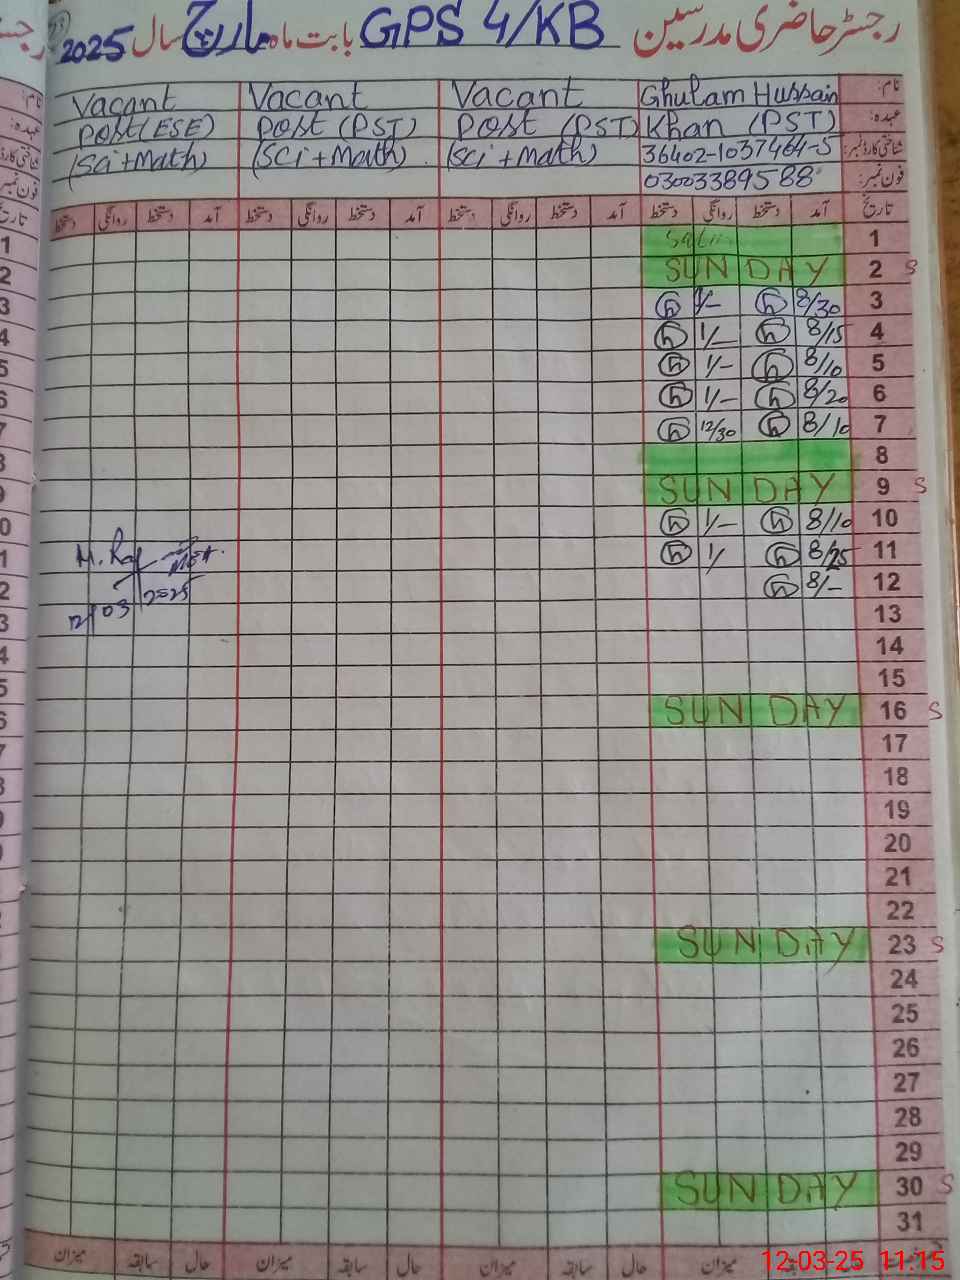 رجسٹر حاضری مدرسین GPS 4/KB بابت ماہ مارچ سال 2025
نام: Ghulam Hussain Vacant Vacant Vacant
عہدہ: Khan (PST) Post (PST) Post (PST) Post (ESE)
شناختی کارڈ نمبر: 36402-1037464-5 (Sci+Math) (Sci+Math) (Sci+Math)
فون نمبر: 03003389588
تاریخ آمد دستخط روانگی دستخط آمد دستخط روانگی دستخط آمد دستخط روانگی دستخط آمد دستخط روانگی دستخط
1
2 SUNDAY S
3 8/30 1/-
4 8/15 1/-
5 8/10 1/-
6 8/20 1/-
7 8/10 12/30
8
9 SUNDAY S
10 8/10 1/-
11 8/25 1/
12 8/-
12/03
13
14
15
16 SUNDAY S
17
18
19
20
21
22
23 SUNDAY S
24
25
26
27
28
29
30 SUNDAY S
31
سابقہ حال میزان سابقہ حال میزان سابقہ حال میزان
12-03-25 11:15